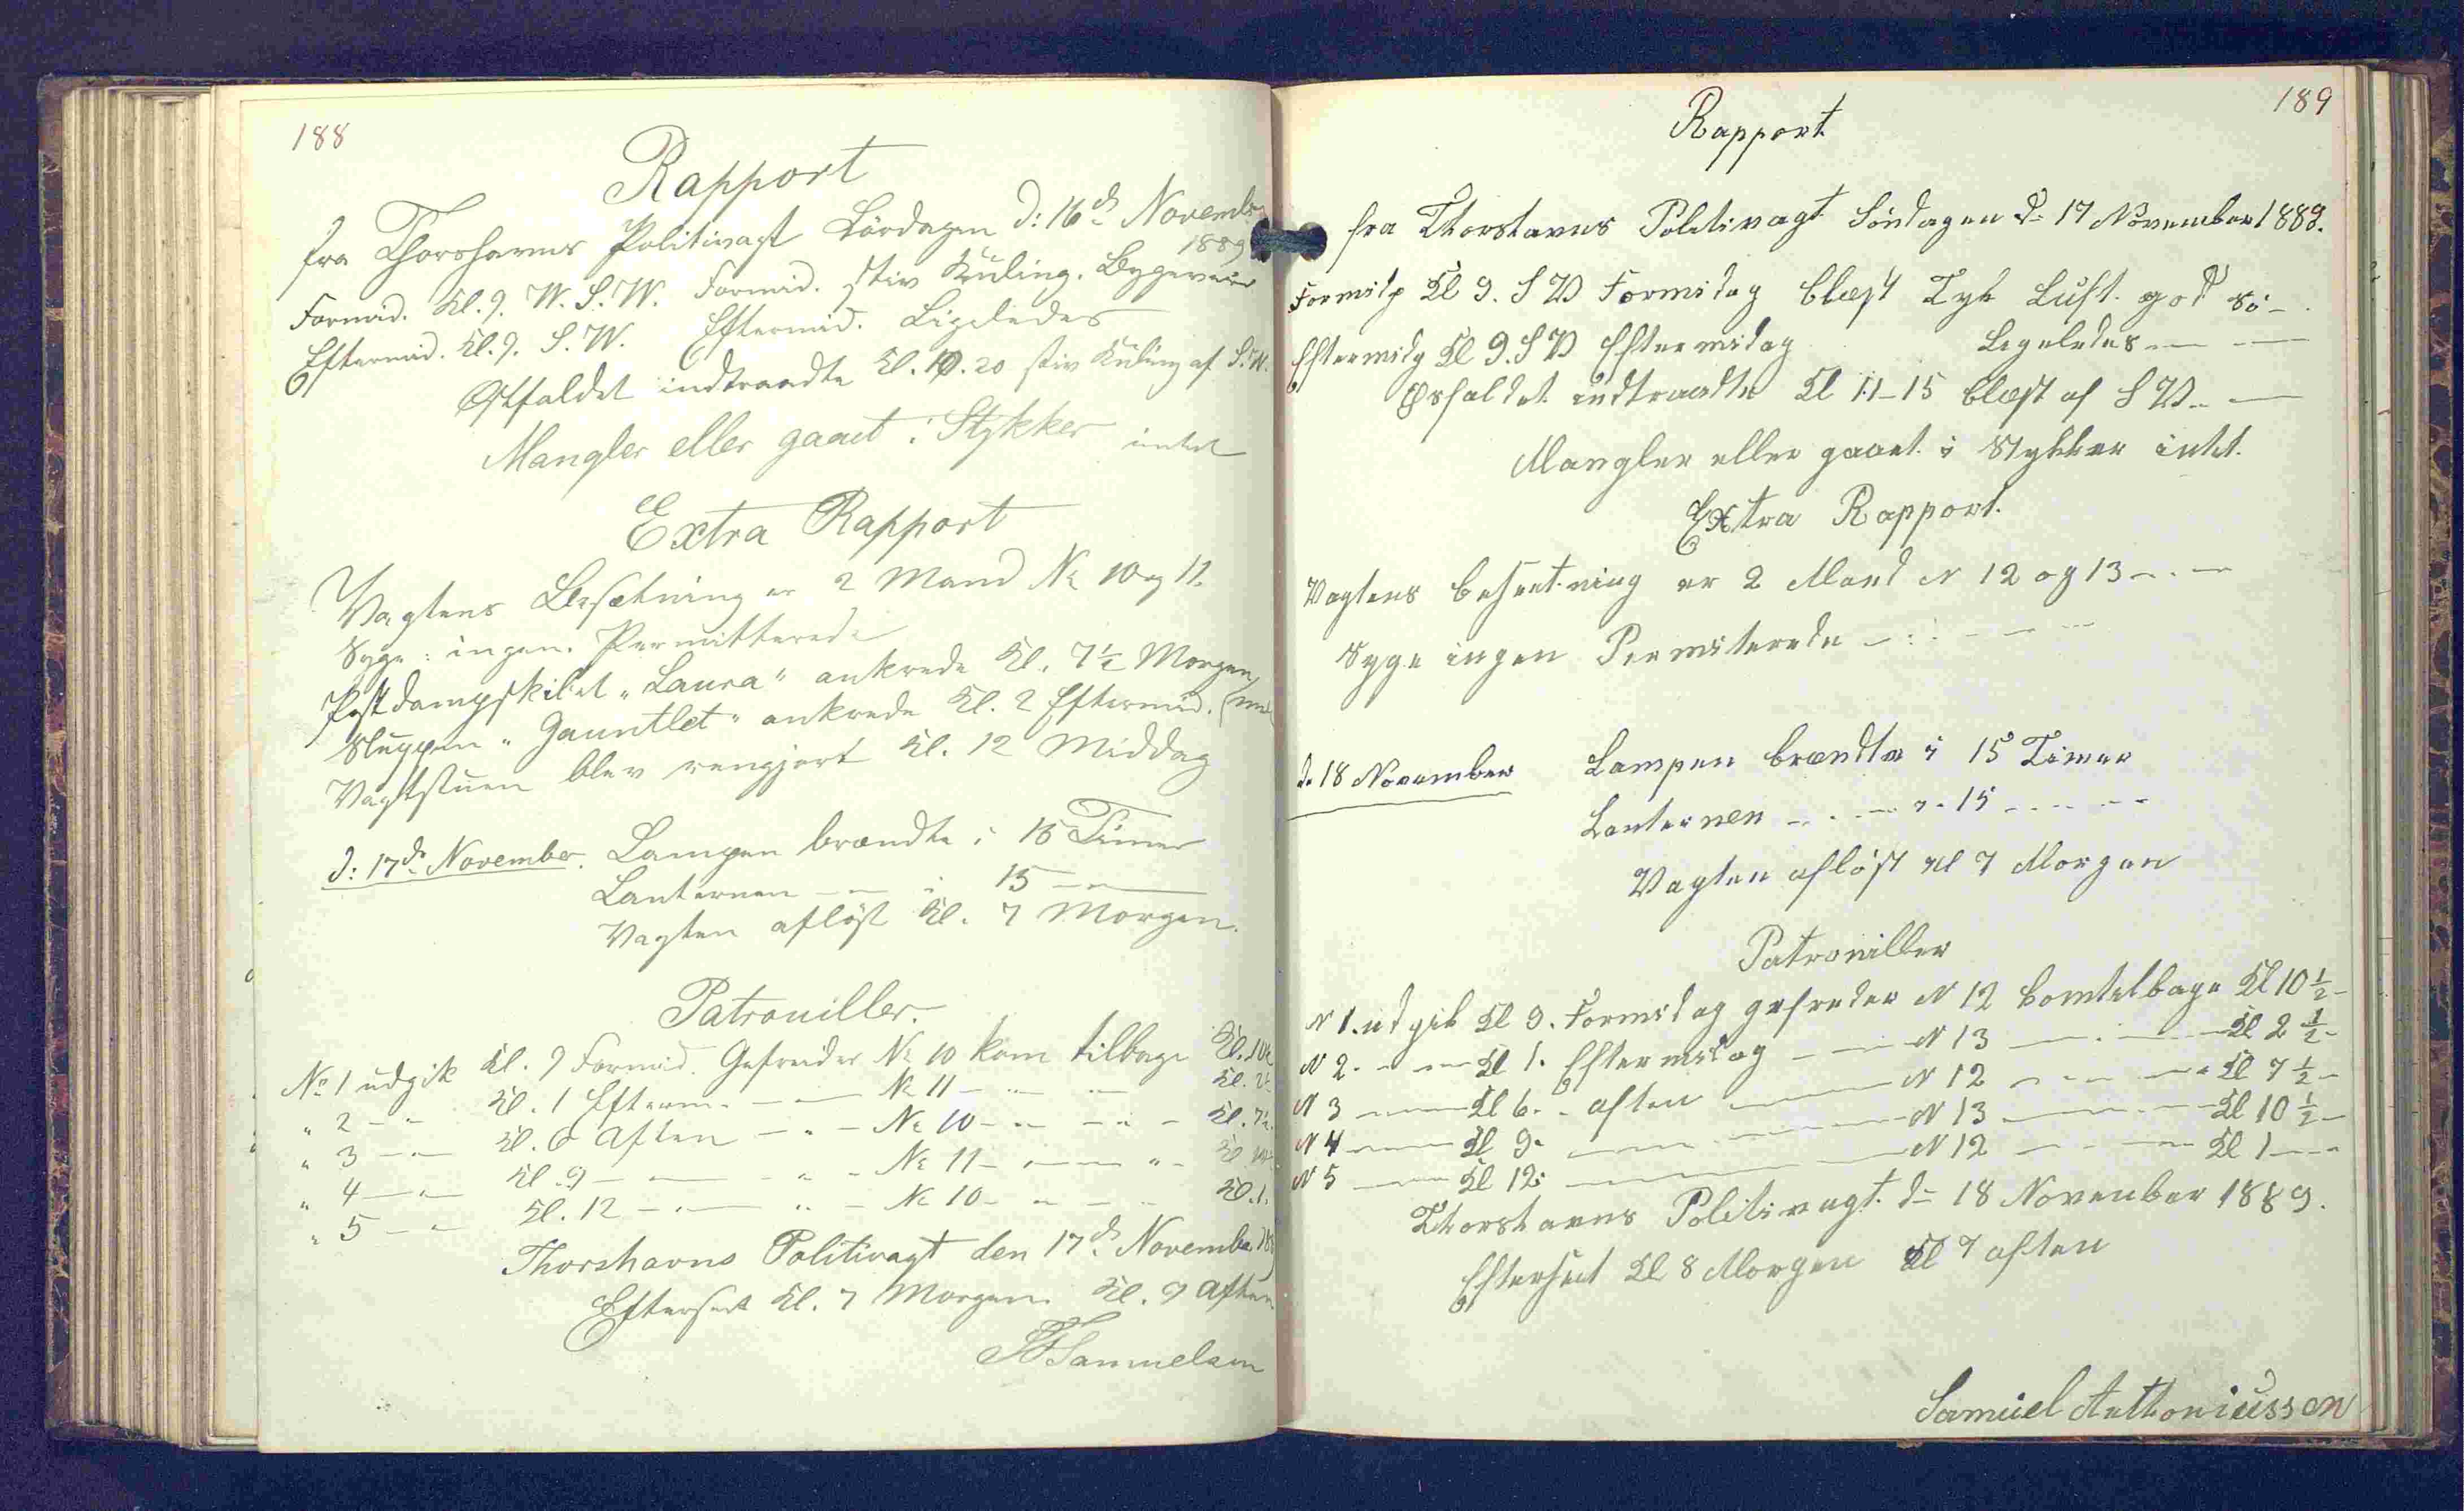 188
Rapport
fra Thorshavns Politivagt Lördagen d: 16de Novembr
1889
Formid. Kl. 9. W. S. W. Formid. stiv Kuling. Bygeveir
Eftermid. Kl. 9. S. W. Eftermid. Ligeledes
Østfaldet indtraadte Kl. 10.20 stiv Kuling af S.W.
Mangler eller gaaet i Stykker intet
Extra Rapport
Vagtens Besætning er 2 Mand No 10 og 11.
Syge: ingen. Permitterede
Postdampskibet "Laura" ankrede Kl. 7½ Morgen
Sluppen "Gauntlet" ankrede Kl. 2 Eftermid.
Vagtstuen blev rengjort Kl. 12 Middag
d: 17de November. Lampen brændte i 15 Timer
Lanternen — " — i 15 — " —
Vagten aflöst Kl. 7 Morgen.
Patrouiller.
No 1 udgik Kl. 9 Formid. Gefreider No 10 kom tilbage Kl. 10½
" 2 - " Kl. 1 Efterm. - " - No 11 - " - Kl. 2½
" 3 - " - Kl. 6 Aften - " - No 10 - " - Kl. 7½
" 4 - " - Kl. 9 - " - No 11 - " - Kl. 10½
" 5 - " - Kl. 12 - " - No 10 - " - Kl. 1.
Thorshavns Politivagt den 17de November
Efterseet Kl. 7 Morgen. Kl. 9 Aften
Samuelsen
189
Rapport
fra Thorshavns Politivagt Söndagen d- 17 November 1889.
Formidg Kl 9. S V Formidag blæst Tyk Luft. god Sö -
Eftermidg Kl 9. S V Eftermidag Ligeledes — —
Østfaldet indtraadte Kl 11-15 blæst af S V -
Mangler eller gaaet i Stykker intet.
Extra Rapport.
Vagtens besentning er 2 Mand N 12 og 13 - - -
Syge ingen Permiterede - : - - -
d. 18 November Lampen brændte i 15 Timer
Lanternen - . - " - 15 - - - -
Vagten aflöst Kl 7 Morgen
Patrouiller
N 1. udgik Kl 9. Formidag gefreder N 12 komtelbage Kl 10½ -
N 2. - - Kl 1. Eftermidag - - N 13 - - - Kl 2½ -
N 3 - - Kl 6. - aften - - N 12 - - - Kl 7½ -
N 4 - - Kl 9. - - - N 13 - - - Kl 10½ -
N 5 - - Kl 12. - - - N 12 - - - Kl 1 - -
Thorshavns Politivagt. d- 18 November 1889.
Efterseet Kl 8 Morgen Kl 7 aften
Samuel Anthoniussen